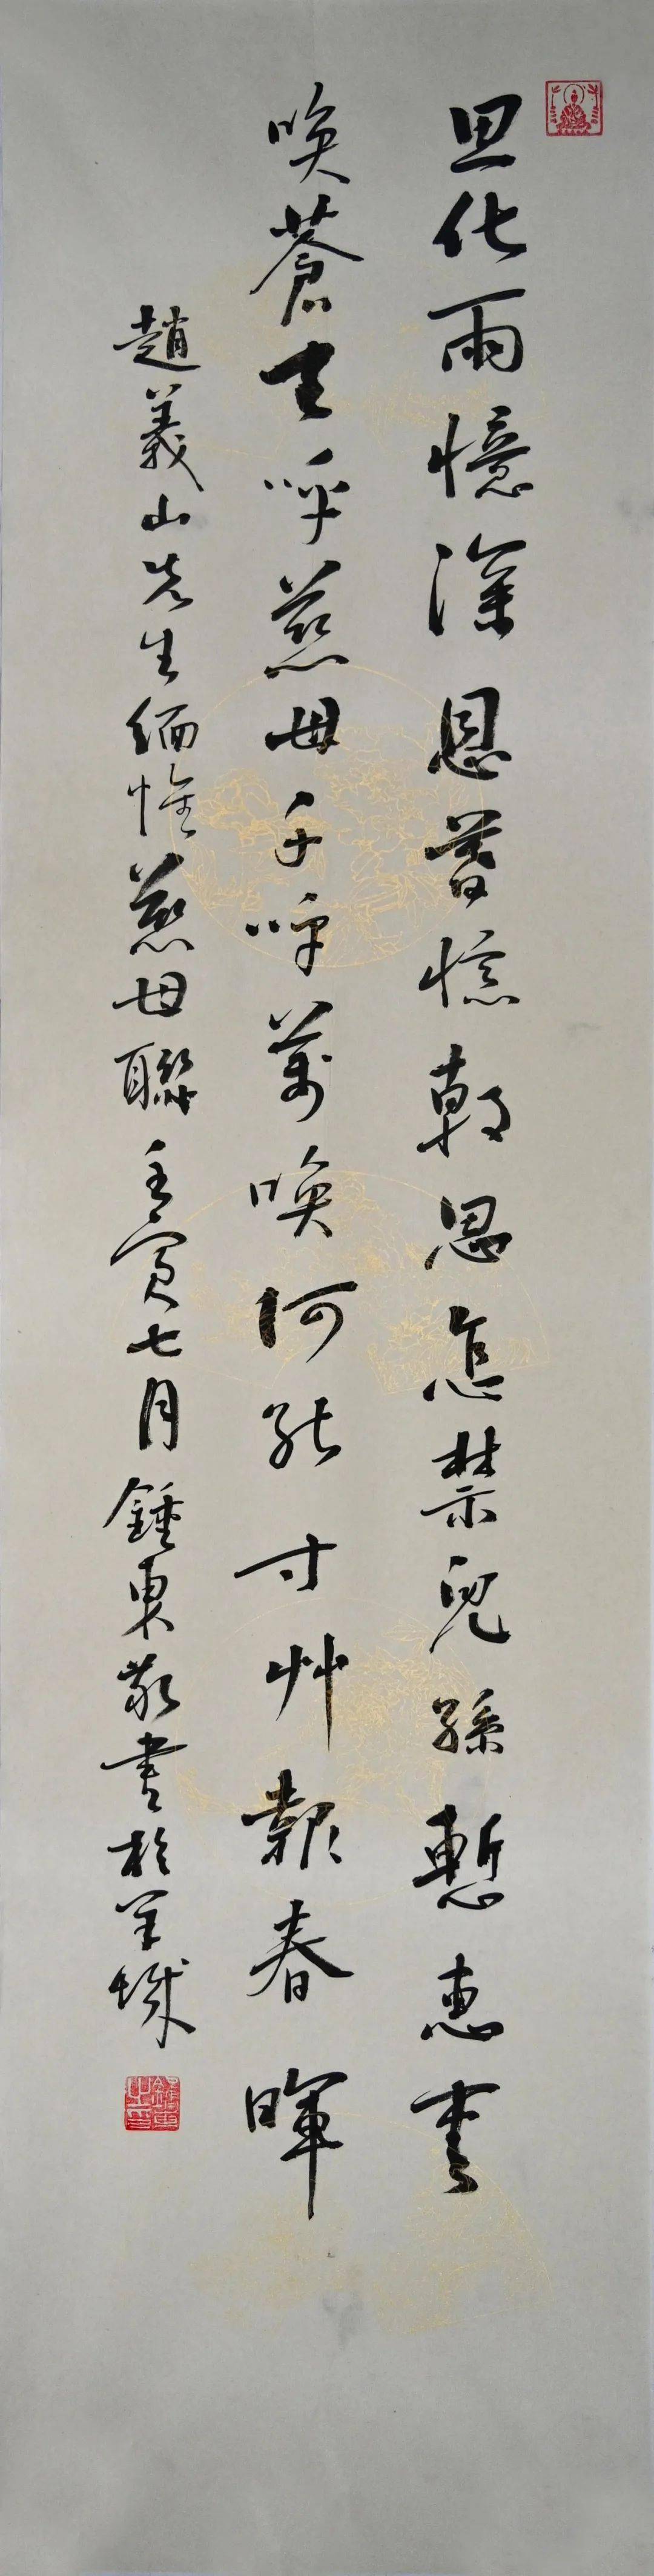 思化雨憶深恩暮憶朝思怎禁兒孫慙惠
喚蒼天呼慈母千呼萬喚何能寸艸報春暉
趙義山先生緬懷慈母聯壬寅七月鍾東敬書於羊城